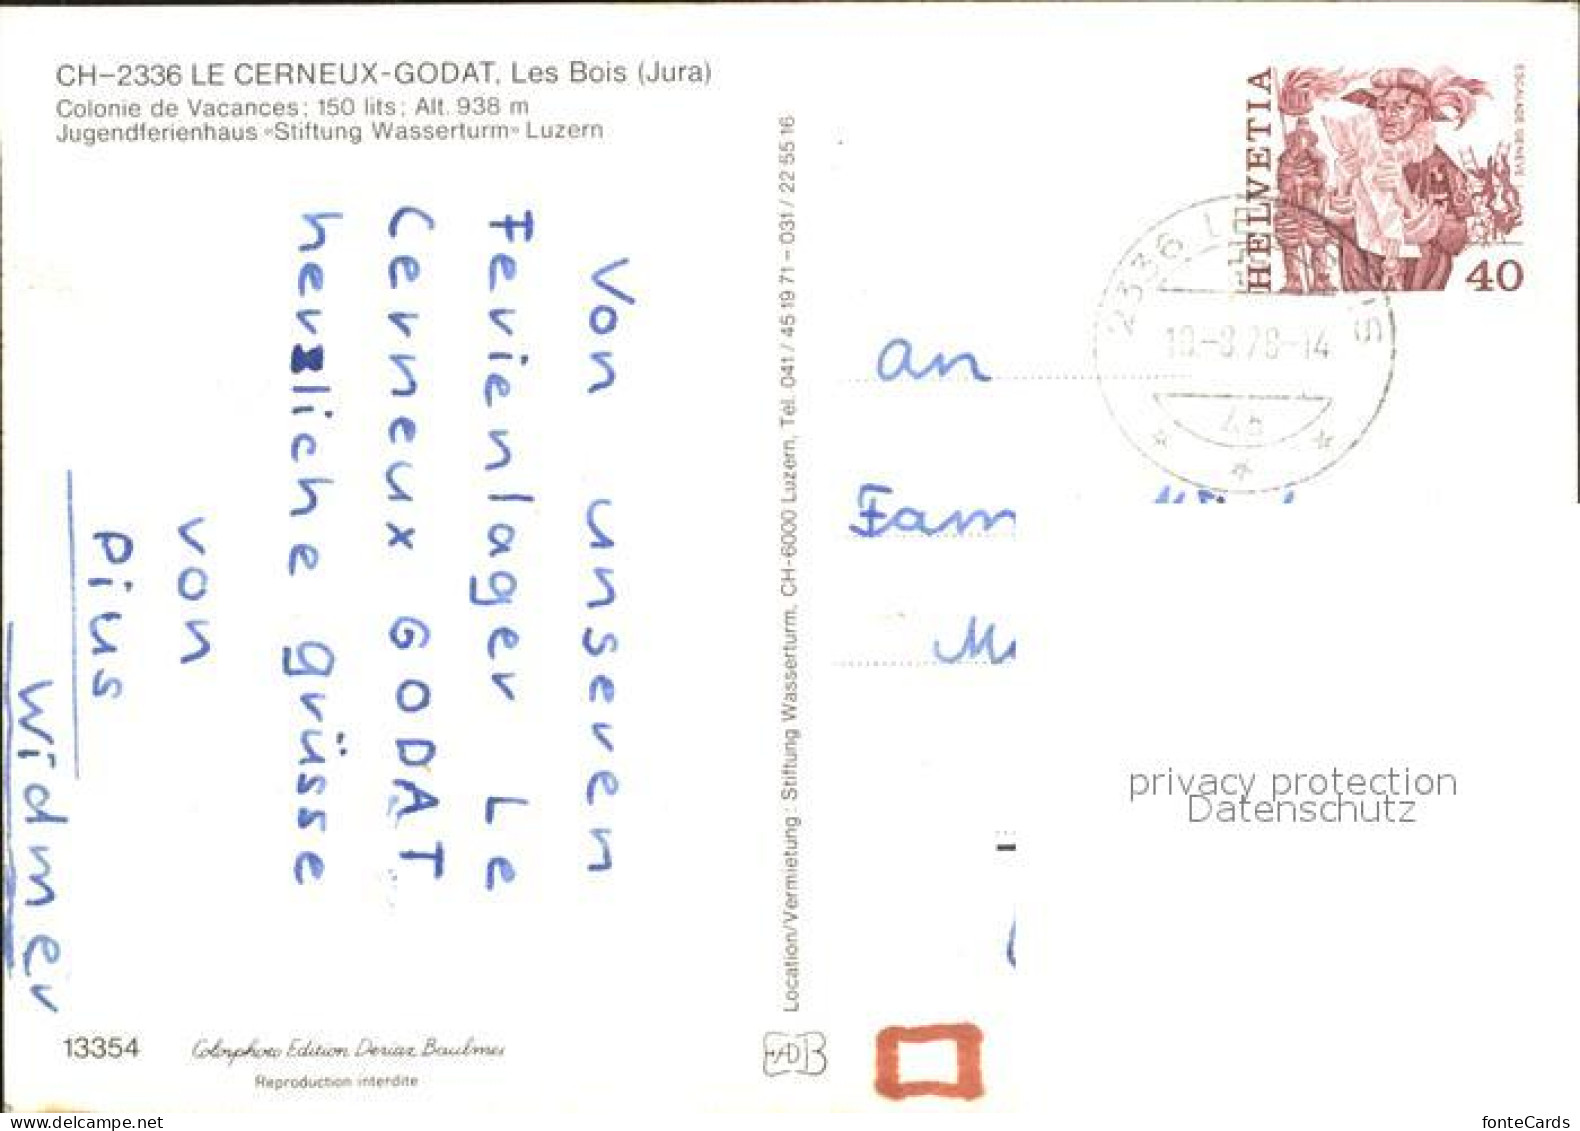 CH-2336 LE CERNEUX-GODAT, Les Bois (Jura)
Colonie de Vacances; 150 lits; Alt. 938 m
Jugendferienhaus «Stiftung Wasserturm» Luzern
Von unseren
Ferienlager Le
Cerneux GODAT
herzliche grüsse
von
Pius
Widmer
13354
Colorphoto Edition Deriaz Baulmes
Reproduction interdite
Location/Vermietung: Stiftung Wasserturm, CH-6000 Luzern, Tél. 041/45 19 71 - 031/22 55 16
HELVETIA
ESCALADE GENÈVE
40
2336 LE
10.-8.78-14
an
Fam
privacy protection
Datenschutz
fonteCards